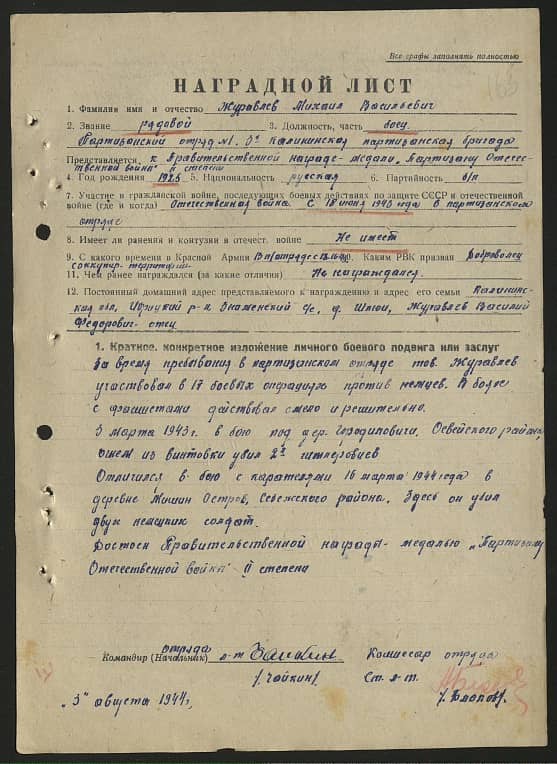 Все графы заполнять полностью
НАГРАДНОЙ ЛИСТ
1. Фамилия имя и отчество Журавлев Михаил Васильевич
2. Звание рядовой 3. Должность, часть боец
Партизанский отряд №1. 3я Калининская партизанская бригада
Представляется к Правительственной награде - медали „Партизану Отечес-
твенной войны" II степени
4. Год рождения 1925 5. Национальность русский 6. Партийность б/п
7. Участие в гражданской войне, последующих боевых действиях по защите СССР и отечественной
войне (где и когда) Отечественная война. С 18 1943 года в партизанском
отряде
8. Имеет ли ранения и контузии в отечест. войне Не имеет
9. С какого времени в Красной Армии В п/отряде с 10. Каким РВК призван Доброволец
с оккупир. территории
11. Чем ранее награждался (за какие отличия) Не награждался.
12. Постоянный домашний адрес представляемого к награждению и адрес его семьи Калининс-
кая обл, Идрицкий р-н Знаменский с/с, д. Журавлев Василий
Федорович - отец
1. Краткое, конкретное изложение личного боевого подвига или заслуг
За время пребывания в партизанском отряде тов. Журавлев
участвовал в 17 боевых операциях против немцев. В боях
с фашистами действовал смело и решительно.
5 марта 1943 г. в бою под дер. Городиловичи, Освейского района,
огнем из винтовки убил 2х гитлеровцев
Отличился в бою с карателями 16 марта 1944 года в
деревне Мишин Остров, Себежского района. Здесь он убил
двух немецких солдат.
Достоен Правительственной награды - медалью „Партизану
Отечественной войны" II степени
отряда
Командир (Начальник) л-т Чайкин Комиссар отряда
/Чайкин/ Ст. л-т.
„5" августа 1944 г,